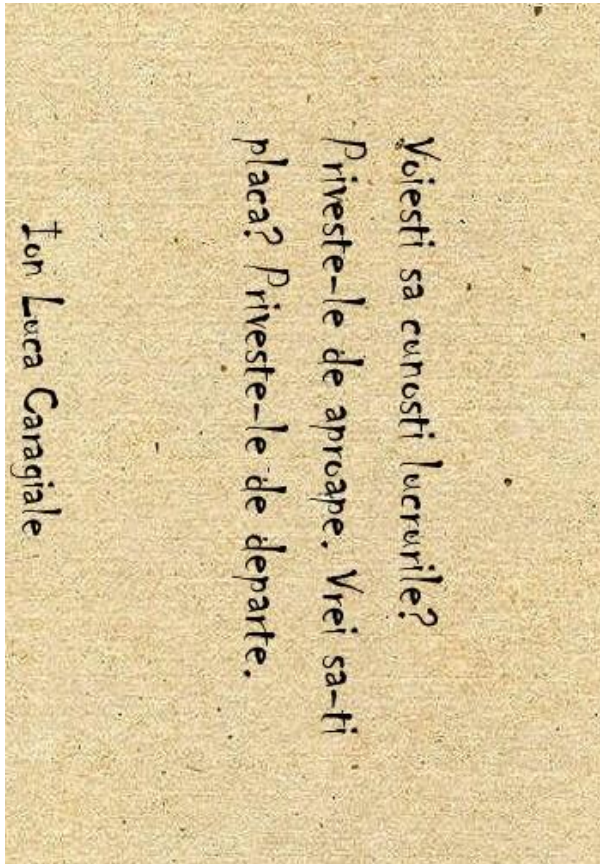 Voiesti sa cunosti lucrurile?
Priveste-le de aproape. Vrei sa-ti
placa? Priveste-le de departe.
Ion Luca Caragiale